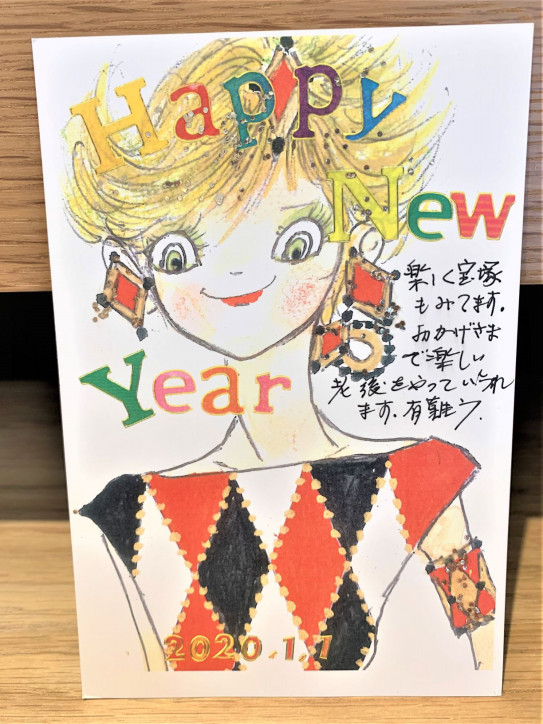 Happy
New
Year
楽しく宝塚
もみてます。
おかげさま
で楽しい
老後をやっていられ
ます。有難う。
2020.1.1